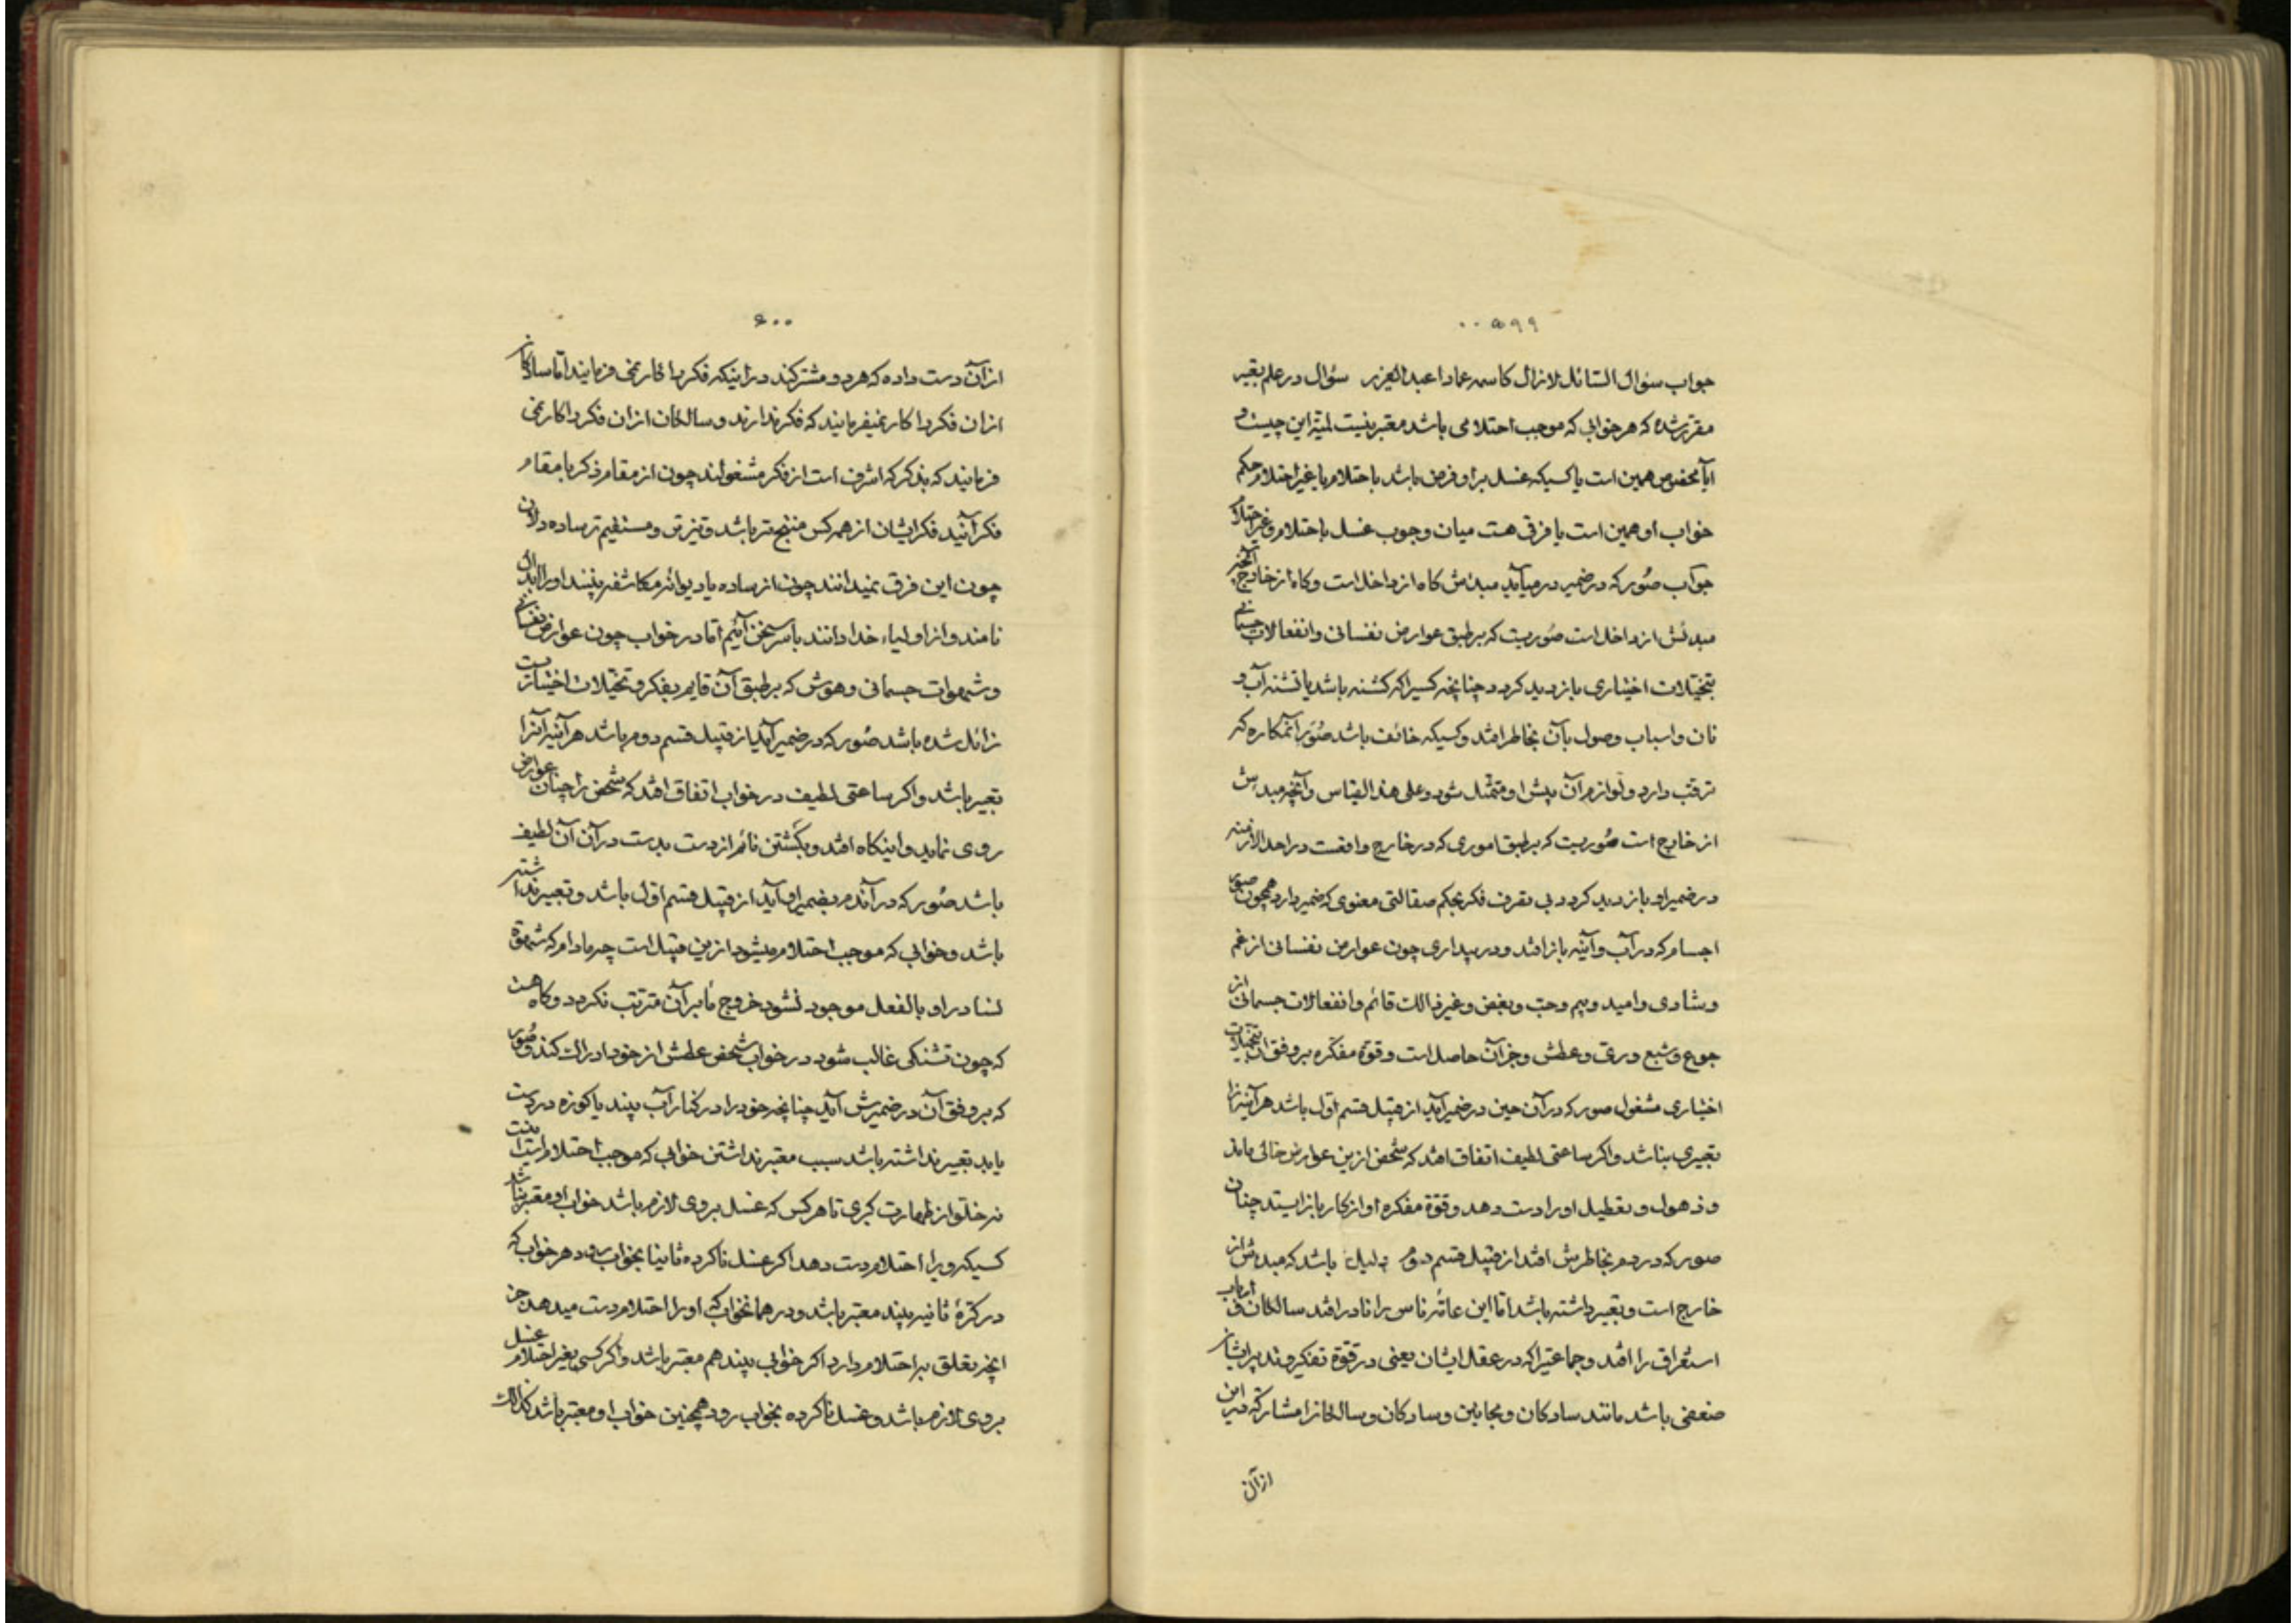 ۵۹۹
جواب سؤال السائل لازال کاسمه عمادا عبد العزیز سؤال در علم تعبیر
مقرر شده که هر خوابی که موجب احتلامی باشد معتبر نیست لمیة این چیست و
ایا مخصوص همین است یا کسیکه غسل براو فرض باشد باحتلام یا غیر احتلام حکم
خواب او همین است یا فرقی هست میان وجوب غسل باحتلام و غیر احتلام
جواب صُور که در ضمیر درمیآید مبدئش کاه از داخل است و کاه از خارج آنچه
مبدئش از داخل است صُوریست که بر طبق عوارض نفسانی و انفعالات جسمانی
بتخیّلات اختیاری بازدید کردد چنانچه کسیرا که کشنه باشد یا تشنه آب و
نان و اسباب وصول بآن بخاطر افتد و کسیکه خائف باشد صُوَر آنمکاره که
ترقب دارد و لوازم آن پیش او متمثّل شود و علی هذا القیاس و آنچه مبدئش
از خارج است صُوریست که بر طبق اموری که در خارج واقعست در احد الازمنه
در ضمیر او بازدید کردد بی تصرف فکر بحکم صقالتی معنوی که ضمیر دارد همچون صور
اجسام که در آب و آینه باز افتد و در بیداری چون عوارض نفسانی از غم
و شادی و امید و بیم و حبّ و بغض و غیر ذالک قائم و انفعالات جسمانی از
جوع و شبع و ری و عطش و جز آن حاصل است و قوهٔ مفکره بر وفق آن بتخیلات
اختیاری مشغول صور که در آن حین در ضمیر آید از قبیل قسم اوّل باشد هر آینه آنرا
تعبیری نباشد و اکر ساعتی لطیف اتفاق افتد که شخص ازین عوارض خالی ماند
و ذهول و تعطیل او را دست دهد و قوّة مفکره او از کار باز ایستد چنان
صور که در دم بخاطرش افتد از قبیل قسم دوُم باشد که مبدئش از
خارج است و تعبیر داشته باشد اما این عامّه ناس را نادر افتد سالکان و ارباب
استغراق را افتد و جماعتیرا که در عقل ایشان یعنی در قوّة تفکر و تدبیر ایشان
ضعفی باشد مانند سادکان و مجانین و سادکان و سالکانرا مشارکتی درین
از آن
۶۰۰
از آن دست داده که هر دو مشترکند در اینکه فکر را کار نمی فرمایند اما سادکان
ازان فکر را کار نمیفرمایند که فکر ندارند و سالکان ازان فکر را کار نمی
فرمایند که بذکر که اشرف است از فکر مشغولند چون از مقام ذکر با مقام
فکر آیند فکر ایشان از همه کس منتج تر باشد و تیزتر و مستقیم تر ساده دلان
چون این فرق نمیدانند چون از ساده یا دیوانه مکاشفه بینند او را ابدال
نامند و از اولیاء خدا دانند باسر سخن آئیم اما در خواب چون عوارض نفسانی
و شهوات جسمانی و هوش که بر طبق آن قایم بفکر و تخیلات اختیاریست
زائل شده باشد صُور که در ضمیر آید از قبیل قسم دوم باشد هر آینه آنرا
تعبیر باشد و اکر ساعتی لطیف در خواب اتفاق افتد که شخص را چنان عوارض
روی نماید و اینکاه افتد و بکشتن نائم از دست بدست در آن آن لطیف
باشد صُور که در آندم بضمیر او آید از قبیل قسم اوّل باشد و تعبیر نداشته
باشد و خوابی که موجب احتلام میشود ازین قبیل است چه مادام که شهوة
نسا در او بالفعل موجود نشود خروج ماء بر آن مترتب نکردد و کاه هست
که چون تشنکی غالب شود در خواب شخص عطش از خود ادراک کند و صُور
که بر وفق آن در ضمیرش آید چنانچه خود را در کنار آب بیند یا کوزه در دست
یابد تعبیر نداشته باشد سبب معتبر نداشتن خوابی که موجب احتلام است اینست
نه خلو از طهارت کبری تا هر کس که غسل بر وی لازم باشد خواب او معتبر نباشد
کسیکه ویرا احتلام دست دهد اکر غسل ناکرده ثانیا بخواب رود هر خواب که
در کرّهٔ ثانیه بیند معتبر باشد و در همانخواب که او را احتلام دست میدهد جز
انچه تعلق به احتلام دارد اکر خوابی بیند هم معتبر باشد و اکر کسی بغیر احتلام غسل
بر وی لازم باشد و غسل ناکرده بخواب رود همچنین خواب او معتبر باشد کذالک